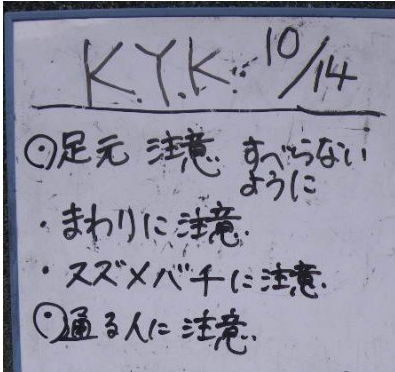 K.Y.K. 10/14
⦿足元 注意 すべらない
ように
・まわりに注意.
・スズメバチに注意.
⦿通る人に注意.